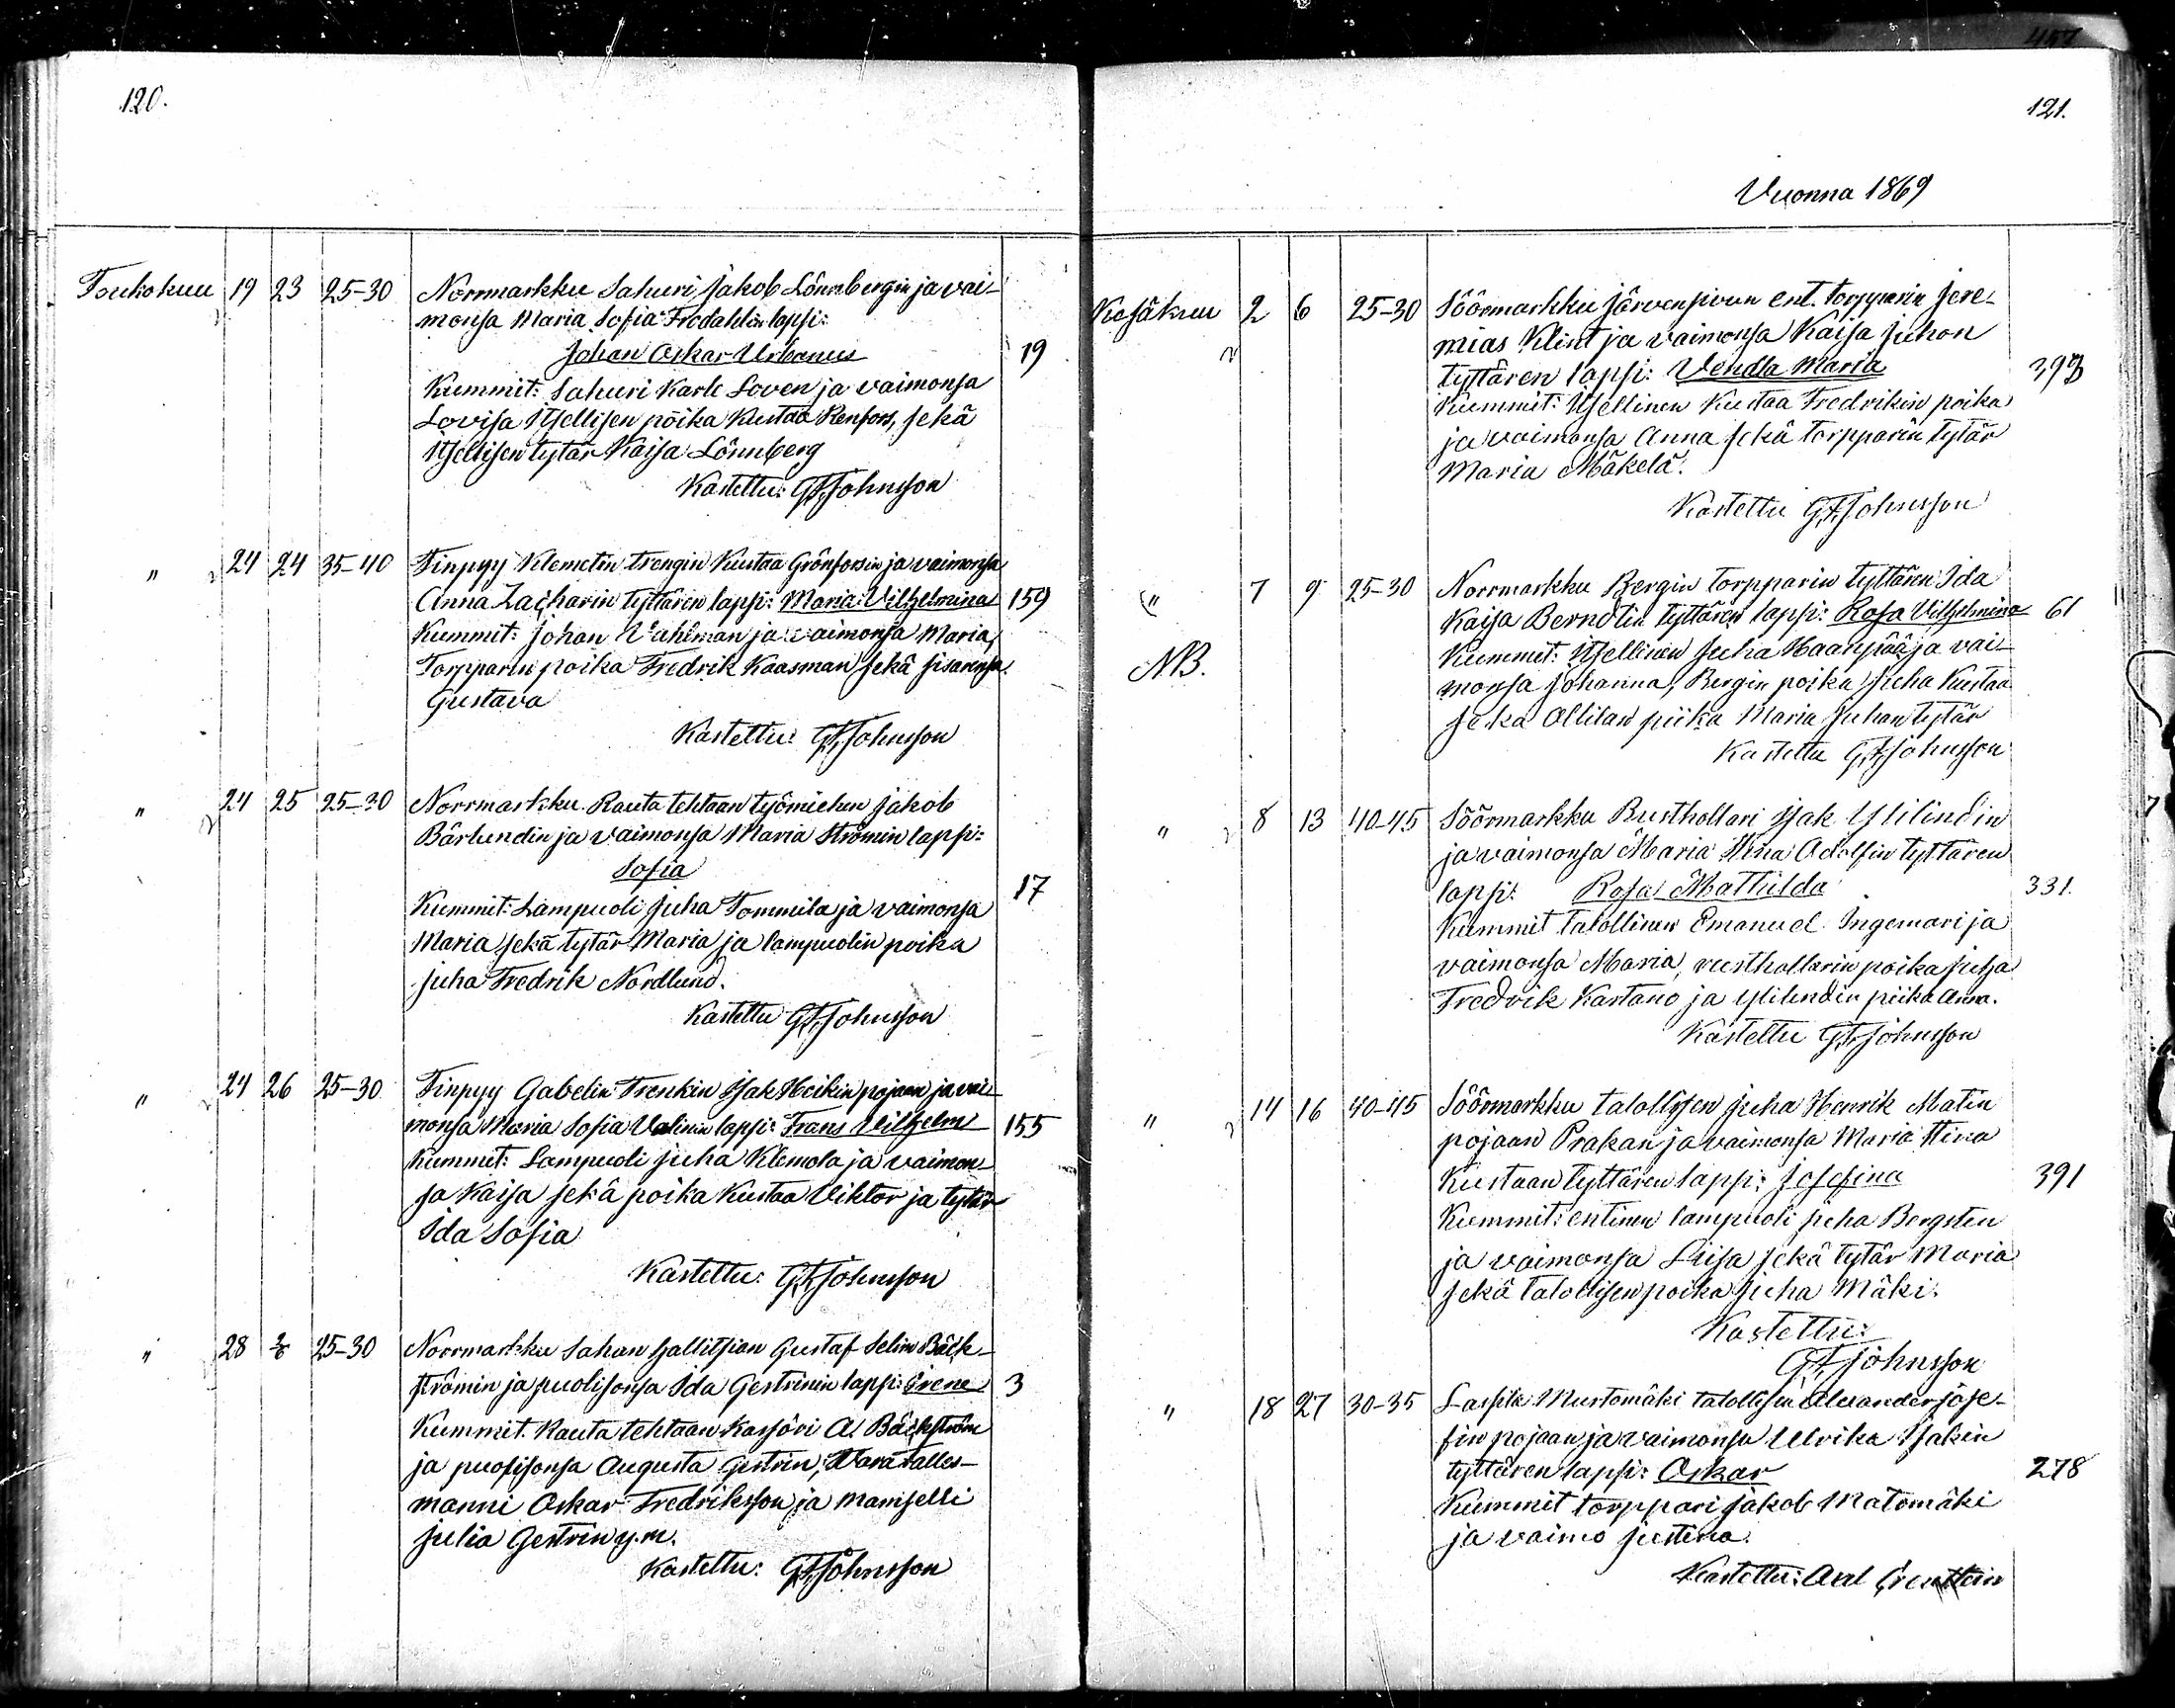 120.
Toukokuu 19 23 25-30 Norrmarkku Sahuri Jakob Lönnbergin ja vai-
monsa Maria Sofia Fredahlin lapsi:
Johan Oskar Urbanus 19
Kummit: Sahuri Karle Loven ja vaimonsa
Lovisa Itsellisen poika Kustaa Renfors, sekä
Itsellisen tytär Kaisa Lönnberg
Kastettu: G.F. Johnsson
" 24 24 35-40 Finpyy Klemetin trengin Kustaa Grönforsin ja vaimonsa
Anna Zacharin tyttären lapsi: Maria Vilhelmina 159
Kummit: Johan Vahlman ja vaimonsa Maria,
Torpparin poika Fredrik Kaasman sekä sisarensa
Gustava
Kastettu: G.F. Johnsson
" 24 25 25-30 Norrmarkku Rauta tehtaan työmiehen Jakob
Bärlundin ja vaimonsa Maria Strömin lapsi:
Sofia
Kummit: Lampuoli Juha Tommila ja vaimonsa 17
Maria sekä tytär Maria ja lampuolin poika
Juha Fredrik Nordlund.
Kastettu G.F. Johnsson
" 24 26 25-30 Finpyy Gabelin Trenkin Isak Heikin pojaan ja vai-
monsa Maria Sofia Valinin lapsi: Frans Vilhelm 155
Kummit: Lampuoli Juha Klemola ja vaimon-
sa Kaisa sekä poika Kustaa Viktor ja tytär
Ida Sofia
Kastettu: G.F. Johnsson
" 28 2/6 25-30 Norrmarkku Sahan hallitsian Gustaf Selim Bäck-
strömin ja puolisonsa Ida Gestrinin lapsi: Irene 3
Kummit. Rauta tehtaan Kassöri A. Bäckström
ja puolisonsa Augusta Gestrin, Varavalles-
manni Oskar Fredriksson ja mamselli
Julia Gestrin y.m.
Kastettu: G.F. Johnsson
121.
Vuonna 1869
Kesäkuu 2 6 25-30 Söörmarkku Järvensivun ent. torpparin Jere-
mias Klint ja vaimonsa Kaisa Juhon
tyttären lapsi: Vendla Maria 393
Kummit: Itsellinen Kustaa Fredrikin poika
ja vaimonsa Anna sekä torpparin tytär
Maria Mäkelä.
Kastettu G.F. Johnsson
" 7 9 25-30 Norrmarkku Bergin Torpparin tyttären Ida
Kaisa Berndtin tyttären lapsi: Rosa Vilhelmina 61
NB. Kummit: Itsellinen Juha Haanpää ja vai-
monsa Johanna, Bergin poika Juha Kustaa
sekä Ollilan piika Maria Juhan tytär
Kastettu G.F. Johnsson
" 8 13 40-45 Söörmarkku Rusthollari Isak Ylilindin
ja vaimonsa Maria Stina Adolfin tyttären
lapsi: Rosa Mathilda 331.
Kummit talollinen Emanuel Ingemari ja
vaimonsa Maria, rusthollarin poika Juha
Fredrik Kartano ja Ylilindin piika Anna.
Kastettu G.F. Johnsson
" 14 16 40-45 Söörmarkku talollisen Juha Henrik Matin
pojaan Prakan ja vaimonsa Maria Stina
Kustaan tyttären lapsi: Josefina 391
Kummit: entinen lampuoli Juha Bergsten
ja vaimonsa Liisa sekä tytär Maria
sekä talollisen poika Juha Mäki.
Kastettu:
G.F. Johnsson
" 18 27 30-35 Lassila Mustomäki talollisen Alexander Jose-
fin pojaan ja vaimonsa Ulrika Isakin
tyttären lapsi: Oskar 278
Kummit torppari Jakob Matomäki
ja vaimo Justina.
Kastettu: Axel